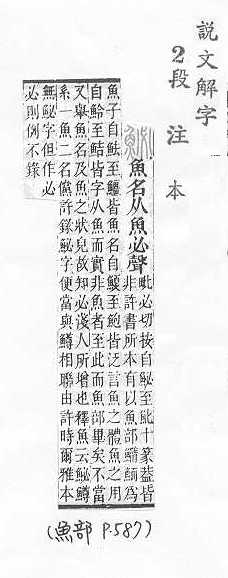 說文解字
2段 注 本
鮅 魚名从魚必聲
毗必切按自鮅至魮十篆蓋皆
非許書所本有以魚部鰖鮞爲
魚子自魼至鱺皆魚名自鰒至鮑皆泛言魚之體魚之用
自魿至鮚皆字从魚而實非魚者至此而魚部畢矣不當
又舉魚名及魚之狀皃故知必淺人所增也釋魚云鮅鱒
系一魚二名儻許錄鮅字便當與鱒相聯由許時爾雅本
無鮅字但作必
必則例不錄
(魚部 P.587)